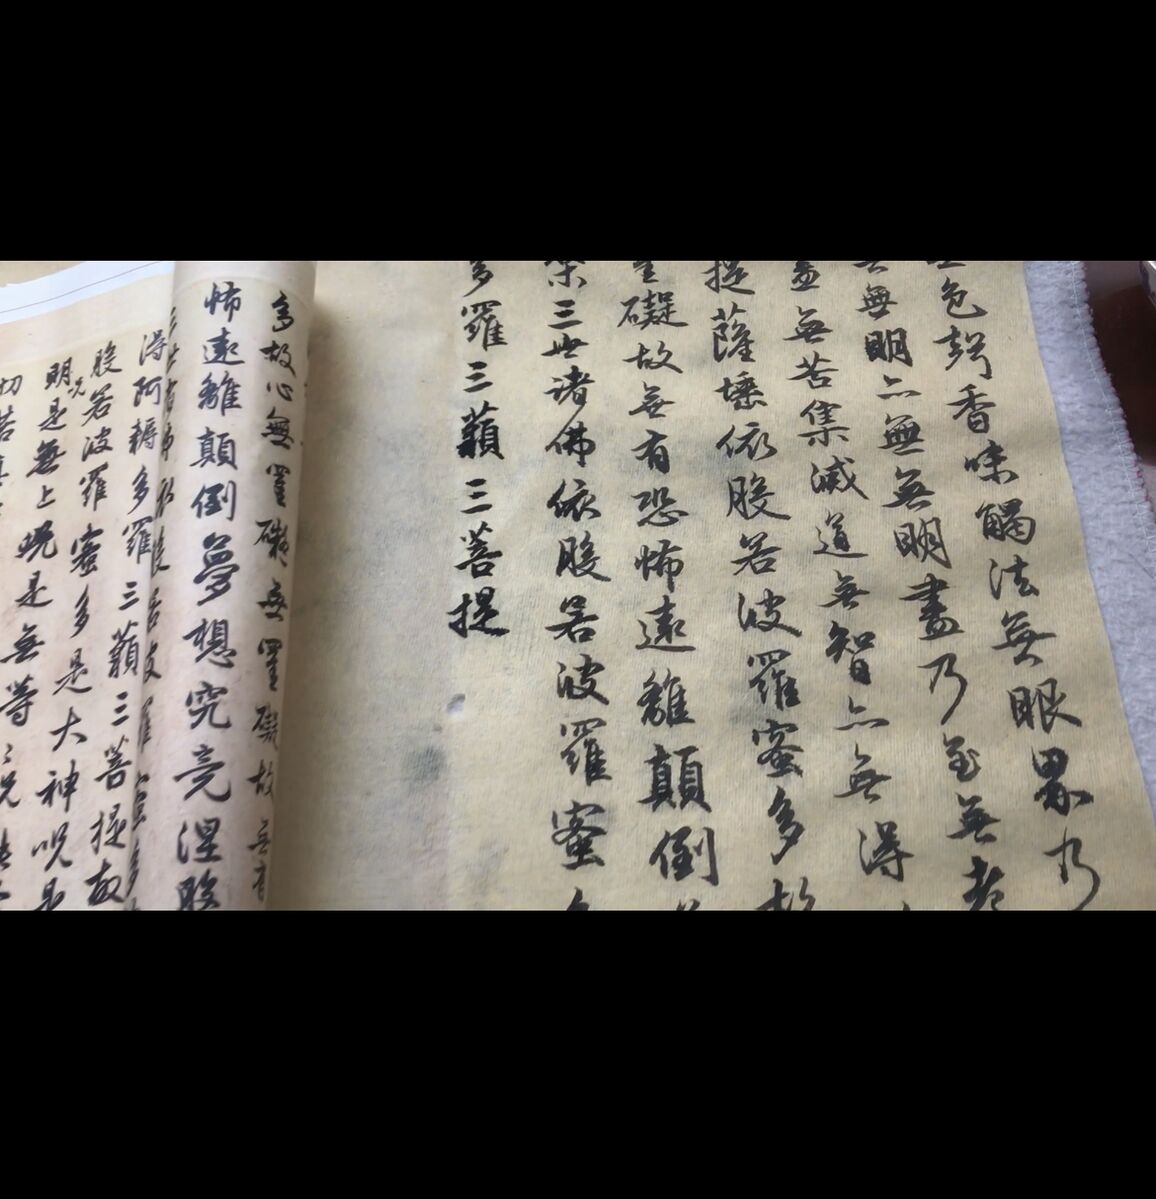 色聲香味觸法無眼界乃
無明亦無無明盡乃至無老
盡無苦集滅道無智亦無得
提薩埵依般若波羅蜜多故
礙故無有恐怖遠離顛倒
三世諸佛依般若波羅蜜
多羅三藐三菩提
多故心無罣礙無罣礙故無有
怖遠離顛倒夢想究竟涅般
得阿耨多羅三藐三菩提故
般若波羅蜜多是大神呪是
明呪是無上呪是無等
切苦真